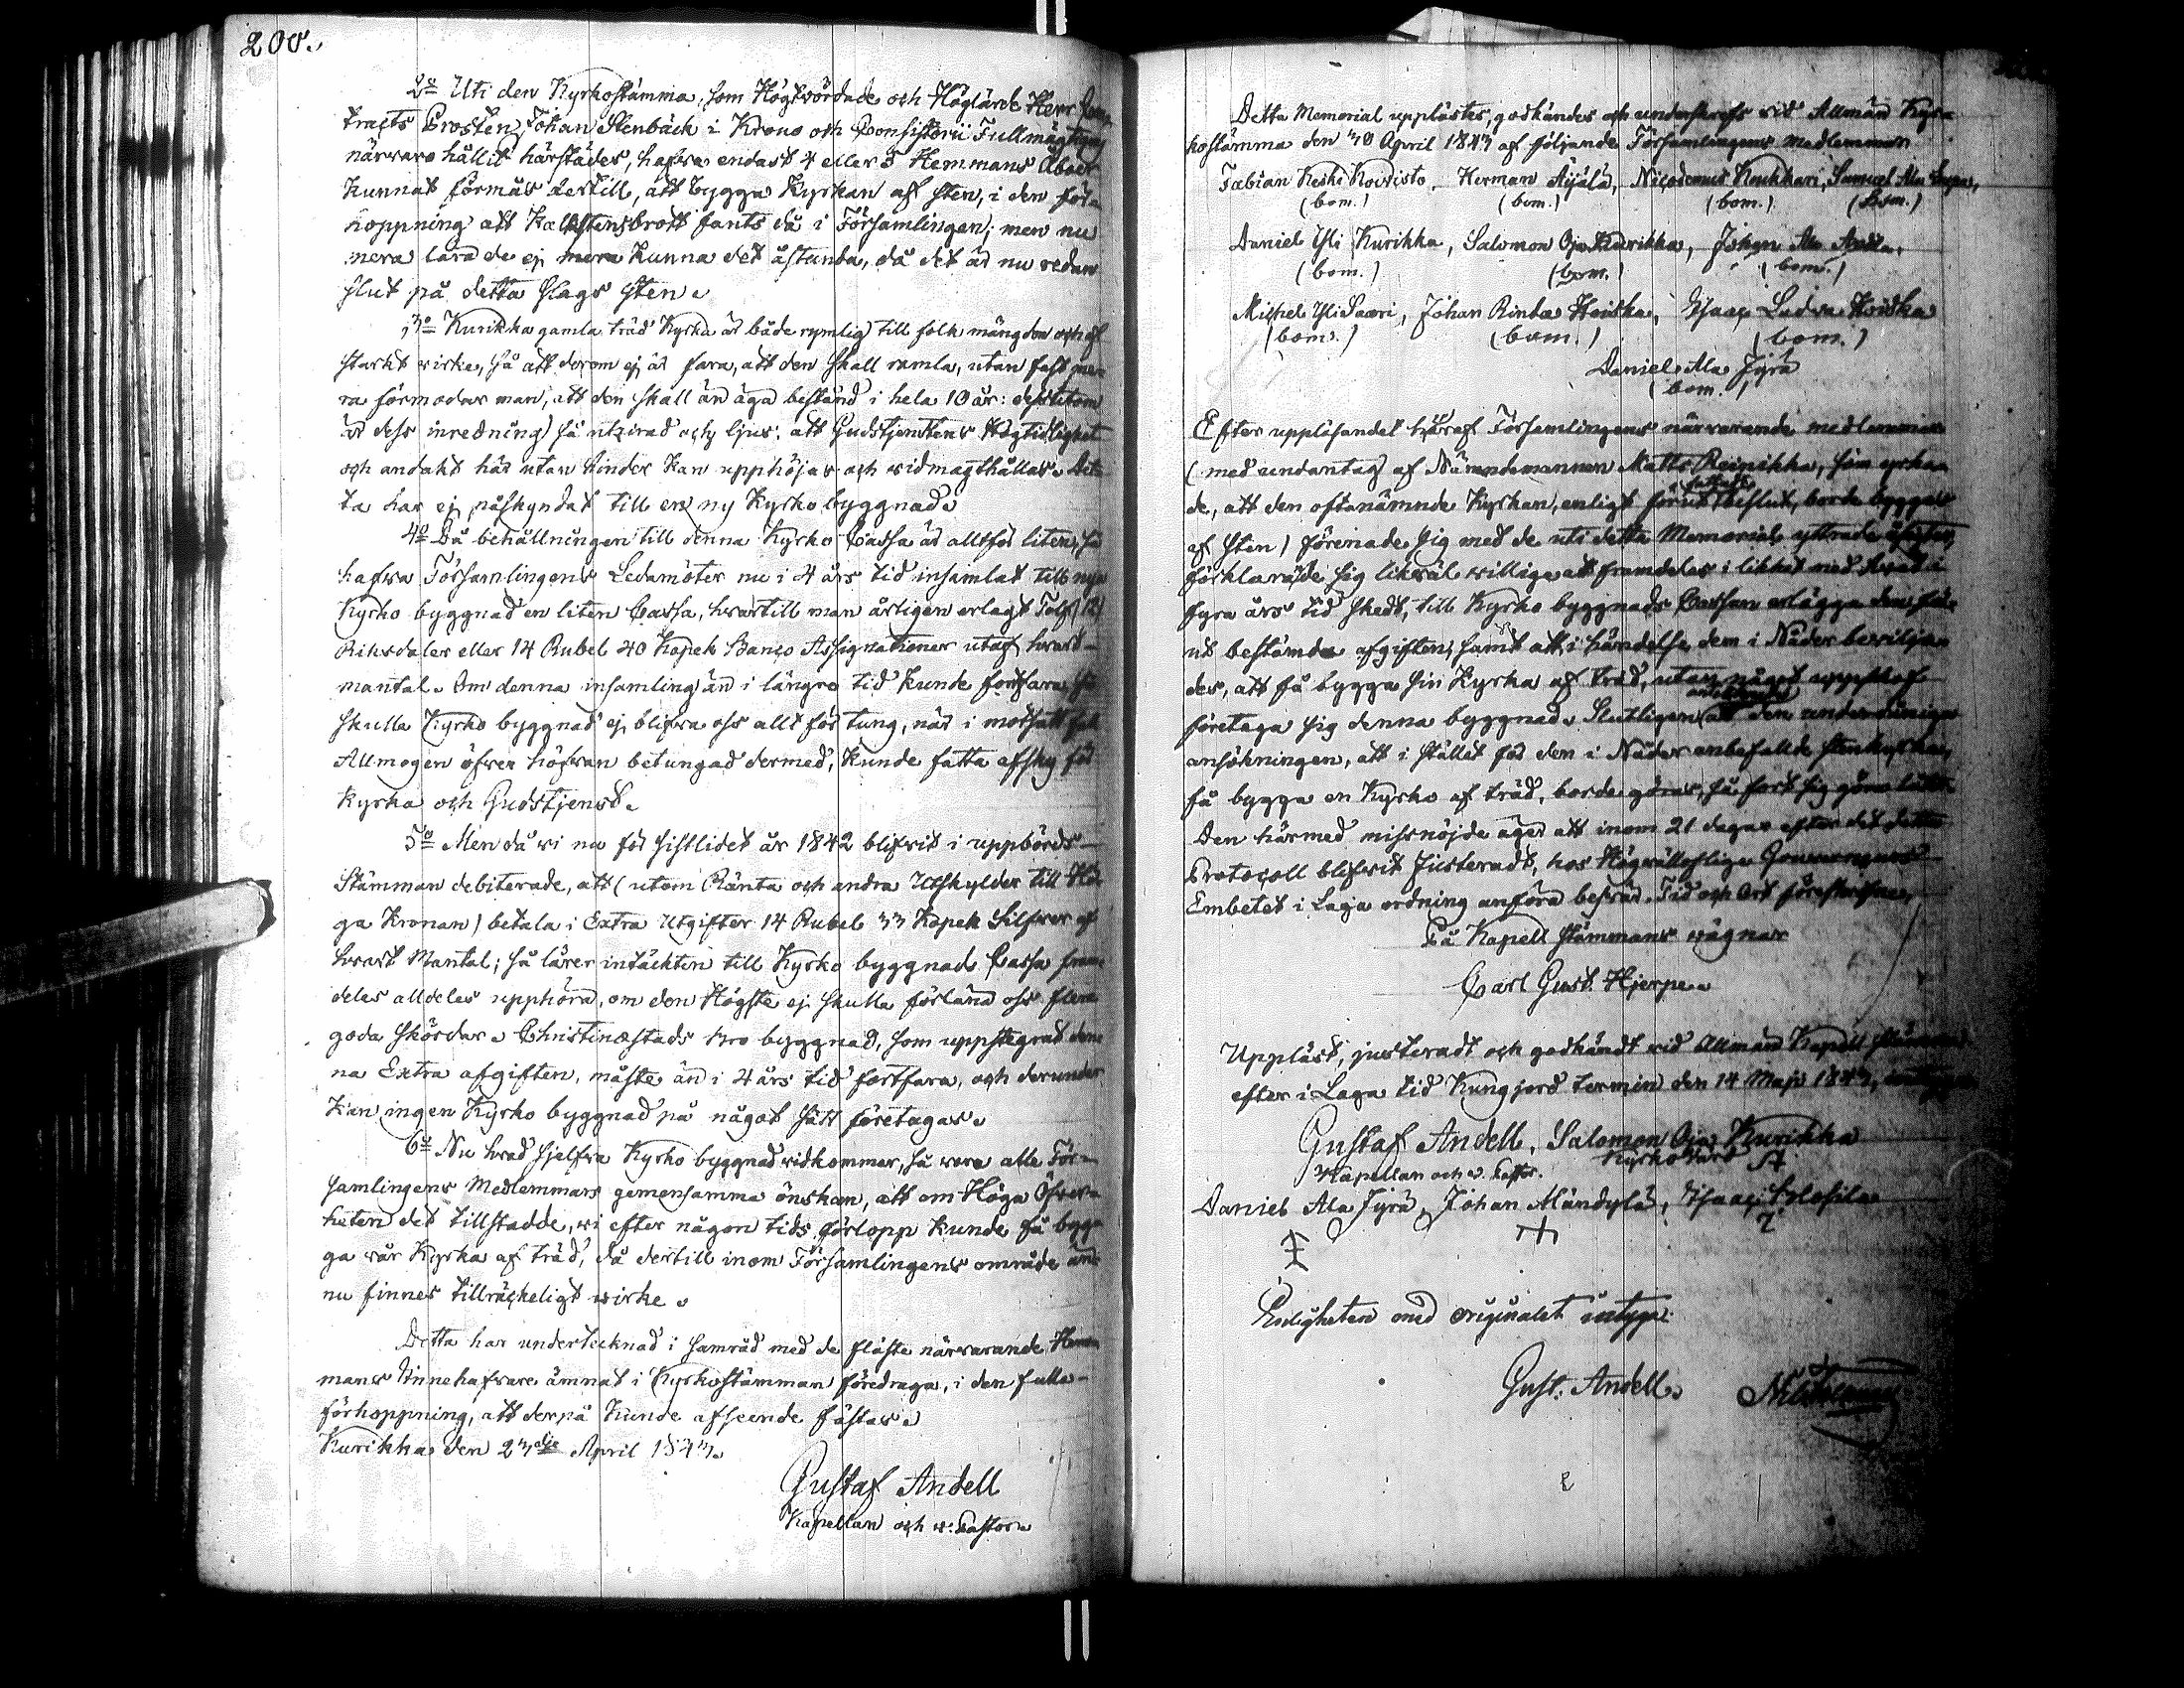 200.
2o Uti den Kyrkostämma, som Högtvördade och Höglärde Herr Con-
tracts Prosten, Johan Stenbäck i Krono och Consistorii Fullmägtigas
närvaro hållit härstädes, hafva endast 4 eller 5 Hemmans Åboer
kunnat förmås dertill, att bygga Kyrkan af sten, i den för-
hoppning att Kalkstensbrott fants då i Församlingen; men nu
mera lära de ej mera kunna det åstunda, då det är nu redan
slut på detta slags sten.
3o Kurikka gamla träd Kyrka är både rymlig till folk mängden och af
starkt virke, så att derom ej är fara, att den skall ramla, utan fast me-
ra förmodar man, att den skall än äga bestånd i hela 10 år: dessutom
är dess inredning så utzirad och ljus, att Gudstjenstens Högtidlighet
och andakt här utan hinder kan upphöjas och vidmagthållas. Det-
ta har ej påskyndat till en ny Kyrko byggnad.
4o Då behållningen till denna Kyrko Cassa är alltför liten, så
hafva Församlingens Ledamöter nu i 4 års tid insamlat till nya
Kyrko byggnad en liten Cassa, hvartill man årligen erlagt Tolf (12)
Riksdaler eller 14 Rubel 40 Kopek Banco Assignationer utaf hvart
mantal. Om denna insamling än i längre tid kunde fortfara, så
skulle Kyrko byggnad ej blifva oss allt för tung, när i motsatt fall
Allmogen öfver höfvan betungad dermed, kunde fatta afsky för
Kyrka och Gudstjenst.
5o Men då vi nu för sistlidet år 1842 blifvit i uppbörds
Stämman debiterade, att (utom Ränta och andra Utskylder till Hö-
ga Kronan) betala i Extra Utgifter 14 Rubel 33 Kopek Silfver af
hvart Mantal; så lärer intäckten till Kyrko byggnads Cassa fram-
deles alldeles upphöra, om den Högste ej skulle förläna oss flera
goda skördar. Christinæstads bro byggnad, som uppstegrat den-
na Extra afgiften, måste än i 4 års tid fortfara, och derunder
kan ingen Kyrko byggnad på något sätt företagas.
6o Nu hvad sjelfva Kyrko byggnad vidkommer, så vore alla För-
samlingens Medlemmars gemensamma önskan, att om Höga Öfver-
heten det tillstadde, vi efter någon tids förlopp kunde få byg-
ga vår Kyrka af träd, då dertill inom Församlingens område än
nu finnes tillräckeligt virke.
Detta har undertecknad i samråd med de fläste närvarande Hem-
mans Innehafvare ämnat i Kyrkostämman föredraga, i den fulla
förhoppning, att derpå kunde afseende fästas.
Kurikka den 23dje April 1843.
Gustaf Andell
Kapellan och v. Pastor.
Detta Memorial upplästes, godkändes och underskrefs vid Allmän Kyr-
kostämma den 30 April 1843 af följande Församlingens medlemmar
Fabian Keski Koivisto, Herman Äijälä, Nicodemus Koukkari, Samuel Ala
(bom.) (bom.) (bom.) (bom.)
Daniel Yli Kurikka, Salomon Oja Kurikka, Johan Ala
(bom.) (bom.) (bom.)
Michel Yli Saari, Johan Rinta Koiska, Isaac Ladva Koiska
(bom.) (bom.) (bom.)
Daniel Ala Jyrä
(bom.)
Efter uppläsandet häraf Församlingens närvarande medlemmar
(med undantag af Nämndemannen Matts Reinikka, som yrka-
de, att den oftanämnde Kyrkan, enligt förut fattadt beslut, borde byggas
af sten) förenade sig med de uti detta Memorial yttrade åsigter,
förklarade sig likväl villige att framdeles i likhet med hvad i
fyra års tid skedt, till Kyrko byggnads Cassan erlägga den för-
ut bestämda afgiften, samt att i händelse dem i Nåder beviljas
des, att få bygga sin Kyrka af träd, utan något uppskof
företaga sig denna byggnad. Slutligen att den underdåniga
ansökningen, att i stället för den i Nåder anbefallde stenkyrkan,
få bygga en Kyrko af träd, borde göras, så fort sig göra låter.
Den härmed missnöjde äger att inom 21 dagar efter det detta
Protocoll blifvit justeradt, hos Högvälloflige Gouverneurs
Embetet i Laga ordning anföra besvär. Tid och Ort föreskrifne,
På Kapell stämmans vägnar
Carl Gust. Hjerpe.
Uppläst, justeradt och godkändt vid Allmän Kapell stämma
efter i Laga tid kungjord termin den 14 Maji 1843,
Gustaf Andell, Salomon Oja Kurikka
Kapellan och v. Pastor. Kyrkovärd
Daniel Ala Jyrä, Johan Mändylä, Isaac
Enligheten med originalet intyga:
Gust. Andell.